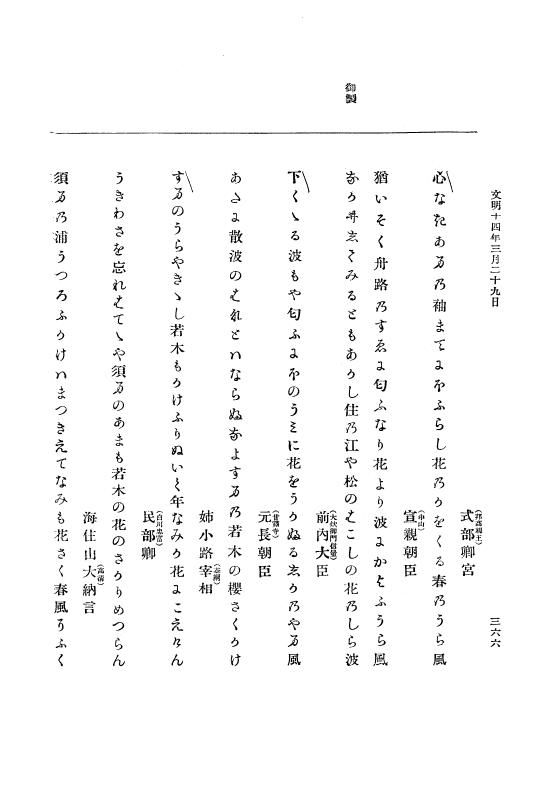 文明十四年三月二十九日
三六六
御製
式部卿宮(邦高親王)
心なきあまの袖まてにほふらし花のかをくる春のうら風
宣親朝臣(中山)
猶いそく舟路のすゑに匂ふなり花より波にかをふうら風
前内大臣(大炊御門信量)
なか井してみるともあかし住の江や松のはこしの花のしら波
元長朝臣(甘露寺)
下くゝる波もや匂ふにほのうみに花をうかぬるしかのやま風
姉小路宰相(基綱)
あたに散波のはなとハならぬなよすまの若木の櫻さくかけ
民部卿(白川忠富)
すまのうらやきゝし若木もかけふりぬいく年なみか花にこえけん
海住山大納言(高清)
うきわさを忘れはてゝや須まのあまも若木の花のさかりめつらん
須まの浦うつろふかけハまつきえてなみも花さく春風そふく